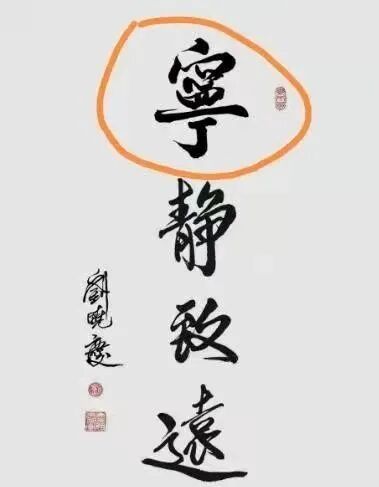 寧
靜
致
遠
劉曉慶